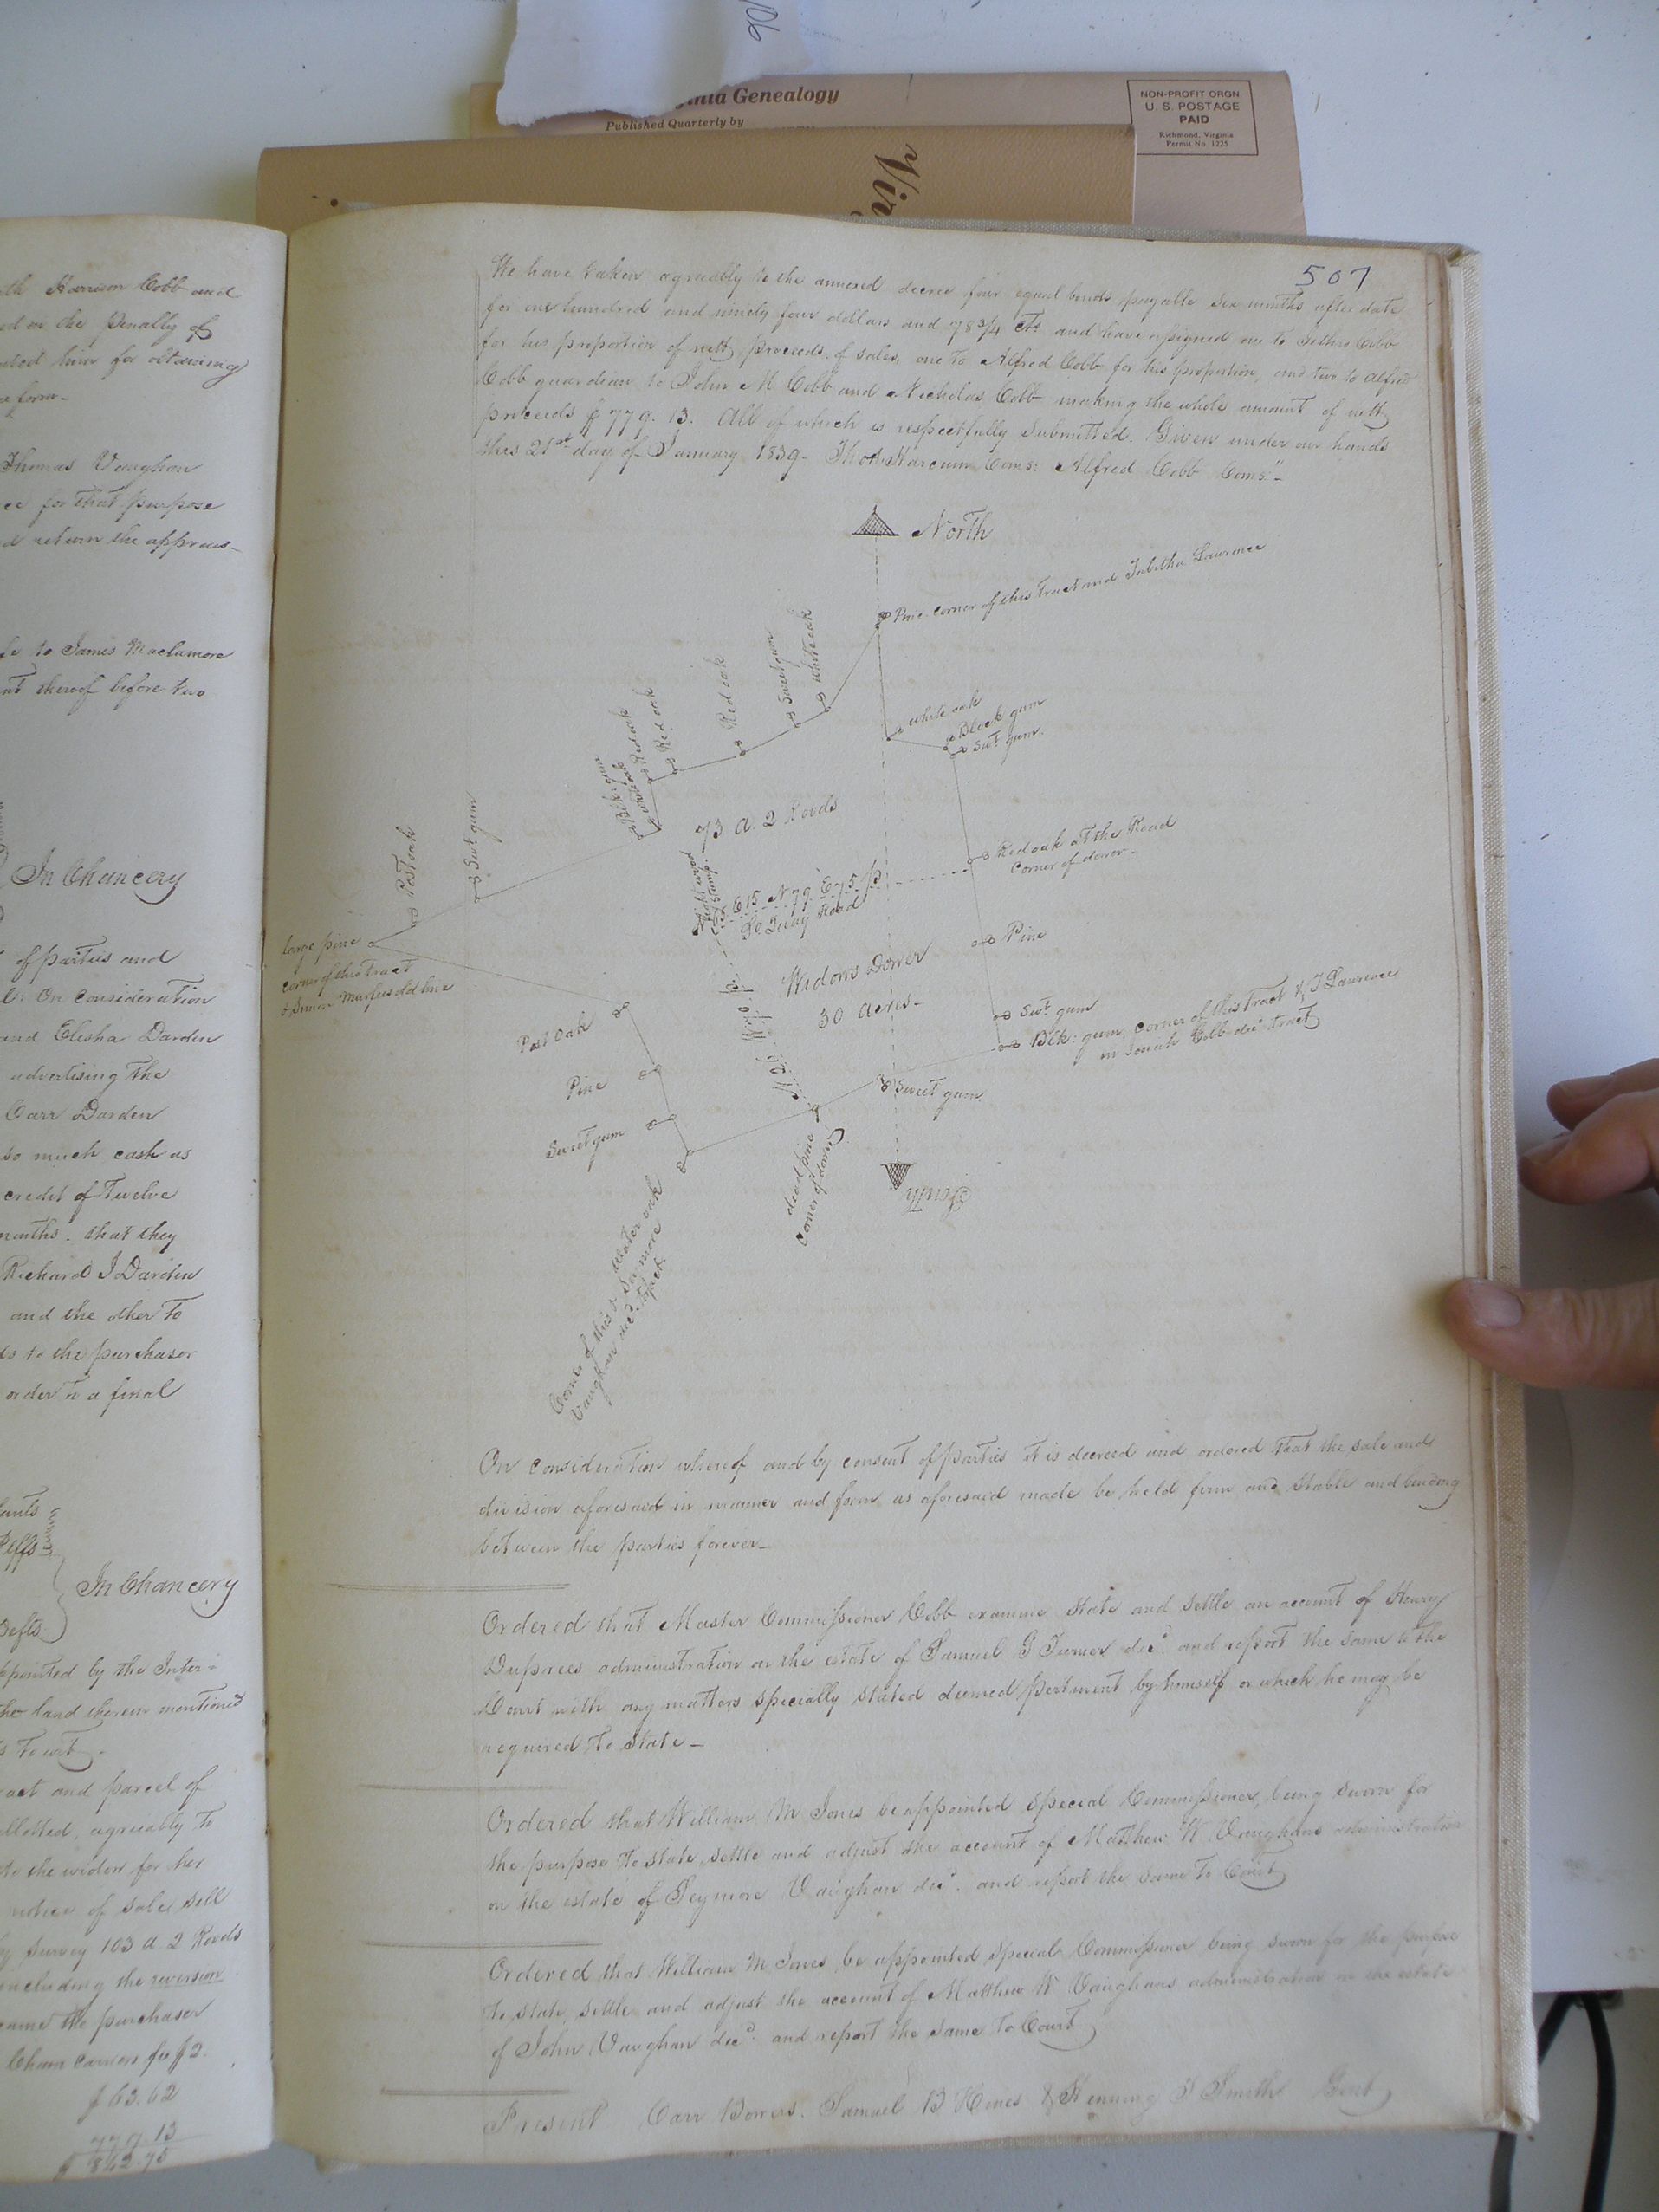 90
Virginia Genealogy
Published Quarterly by
NON-PROFIT ORGN.
U. S. POSTAGE
PAID
Richmond, Virginia
Permit No. 1225
Vir
th Harrison Cobb and
ed in the penalty of
ated him for obtaining
e form-
Thomas Vaughan
ee for that purpose
d return the apprais-
fe to James Maclamore
nt thereof before two
In Chancery
of parties and
On consideration
and Elisha Darden
advertising the
Carr Darden
so much cash as
credit of Twelve
months. that they
Richard J Darden
and the other to
to the purchaser
order to a final
In Chancery
Defts
ppointed by the Inter-
the land therein mentioned
s To wit.
ract and parcel of
allotted, agreeably to
to the widow for her
notice of sale sell
by survey 103 a 2 Roods
including the reversion
came the purchaser
Chain carriers fee $2.
$63.62
779.13
$842.75
507
We have taken agreeably to the annexed decree four equal bonds payable six months after date
for one hundred and ninety four dollars and 78 3/4 cts and have assigned one to Jethro Cobb
for his proportion of nett proceeds of sales, one to Alfred Cobb for his proportion, and two to Alfred
Cobb guardian to John M Cobb and Nicholas Cobb making the whole amount of nett
proceeds $779.13. All of which is respectfully submitted. Given under our hands
this 21st day of January 1839- Thos Harcum Coms: Alfred Cobb Coms"-
North
Pine corner of this Tract and Tabitha Lawrence
White oak
Sweet gum
Red oak
Red oak
Red oak
White oak
Blk: gum
white oak
Black gum
Swt gum.
73 a. 2 Roods
Swt gum
Post oak
Red oak at the Road
Corner of dower-
Light wood
Stump.
E 15 N 79 E 75 p
Road
large pine
corner of this Tract
& Simon Murfees old line
Pine
Widows Dower
30 Acres-
Swt. gum
Blk: gum, corner of this Tract & T Lawrence
in Cobb decd. tract
Post Oak
Pine
Sweet gum
Sweet gum
dead pine
Corner of dower
South
Corner of this & water oak
Vaughan decd. tract.
On consideration whereof and by consent of parties it is decreed and ordered that the sale and
division aforesaid in manner and form as aforesaid made be held firm and stable and binding
between the parties forever-
Ordered that Master Commissioner Cobb examine state and settle an account of Henry
Duprees administration on the estate of Samuel G Turner decd. and report the same to the
Court with any matters specially stated deemed pertinent by himself or which he may be
required to state-
Ordered that William M Jones be appointed special Commissioner, being sworn for
the purpose to state, settle and adjust the account of Matthew W Vaughans administration
on the estate of Seymore Vaughan decd. and report the same to Court
Ordered that William M Jones be appointed special Commissioner being sworn for the purpose
to state, settle and adjust the account of Matthew W Vaughans administration on the estate
of John Vaughan decd. and report the same to Court
Present Carr Bowers. Samuel B Hines & Henning T Smith Gent